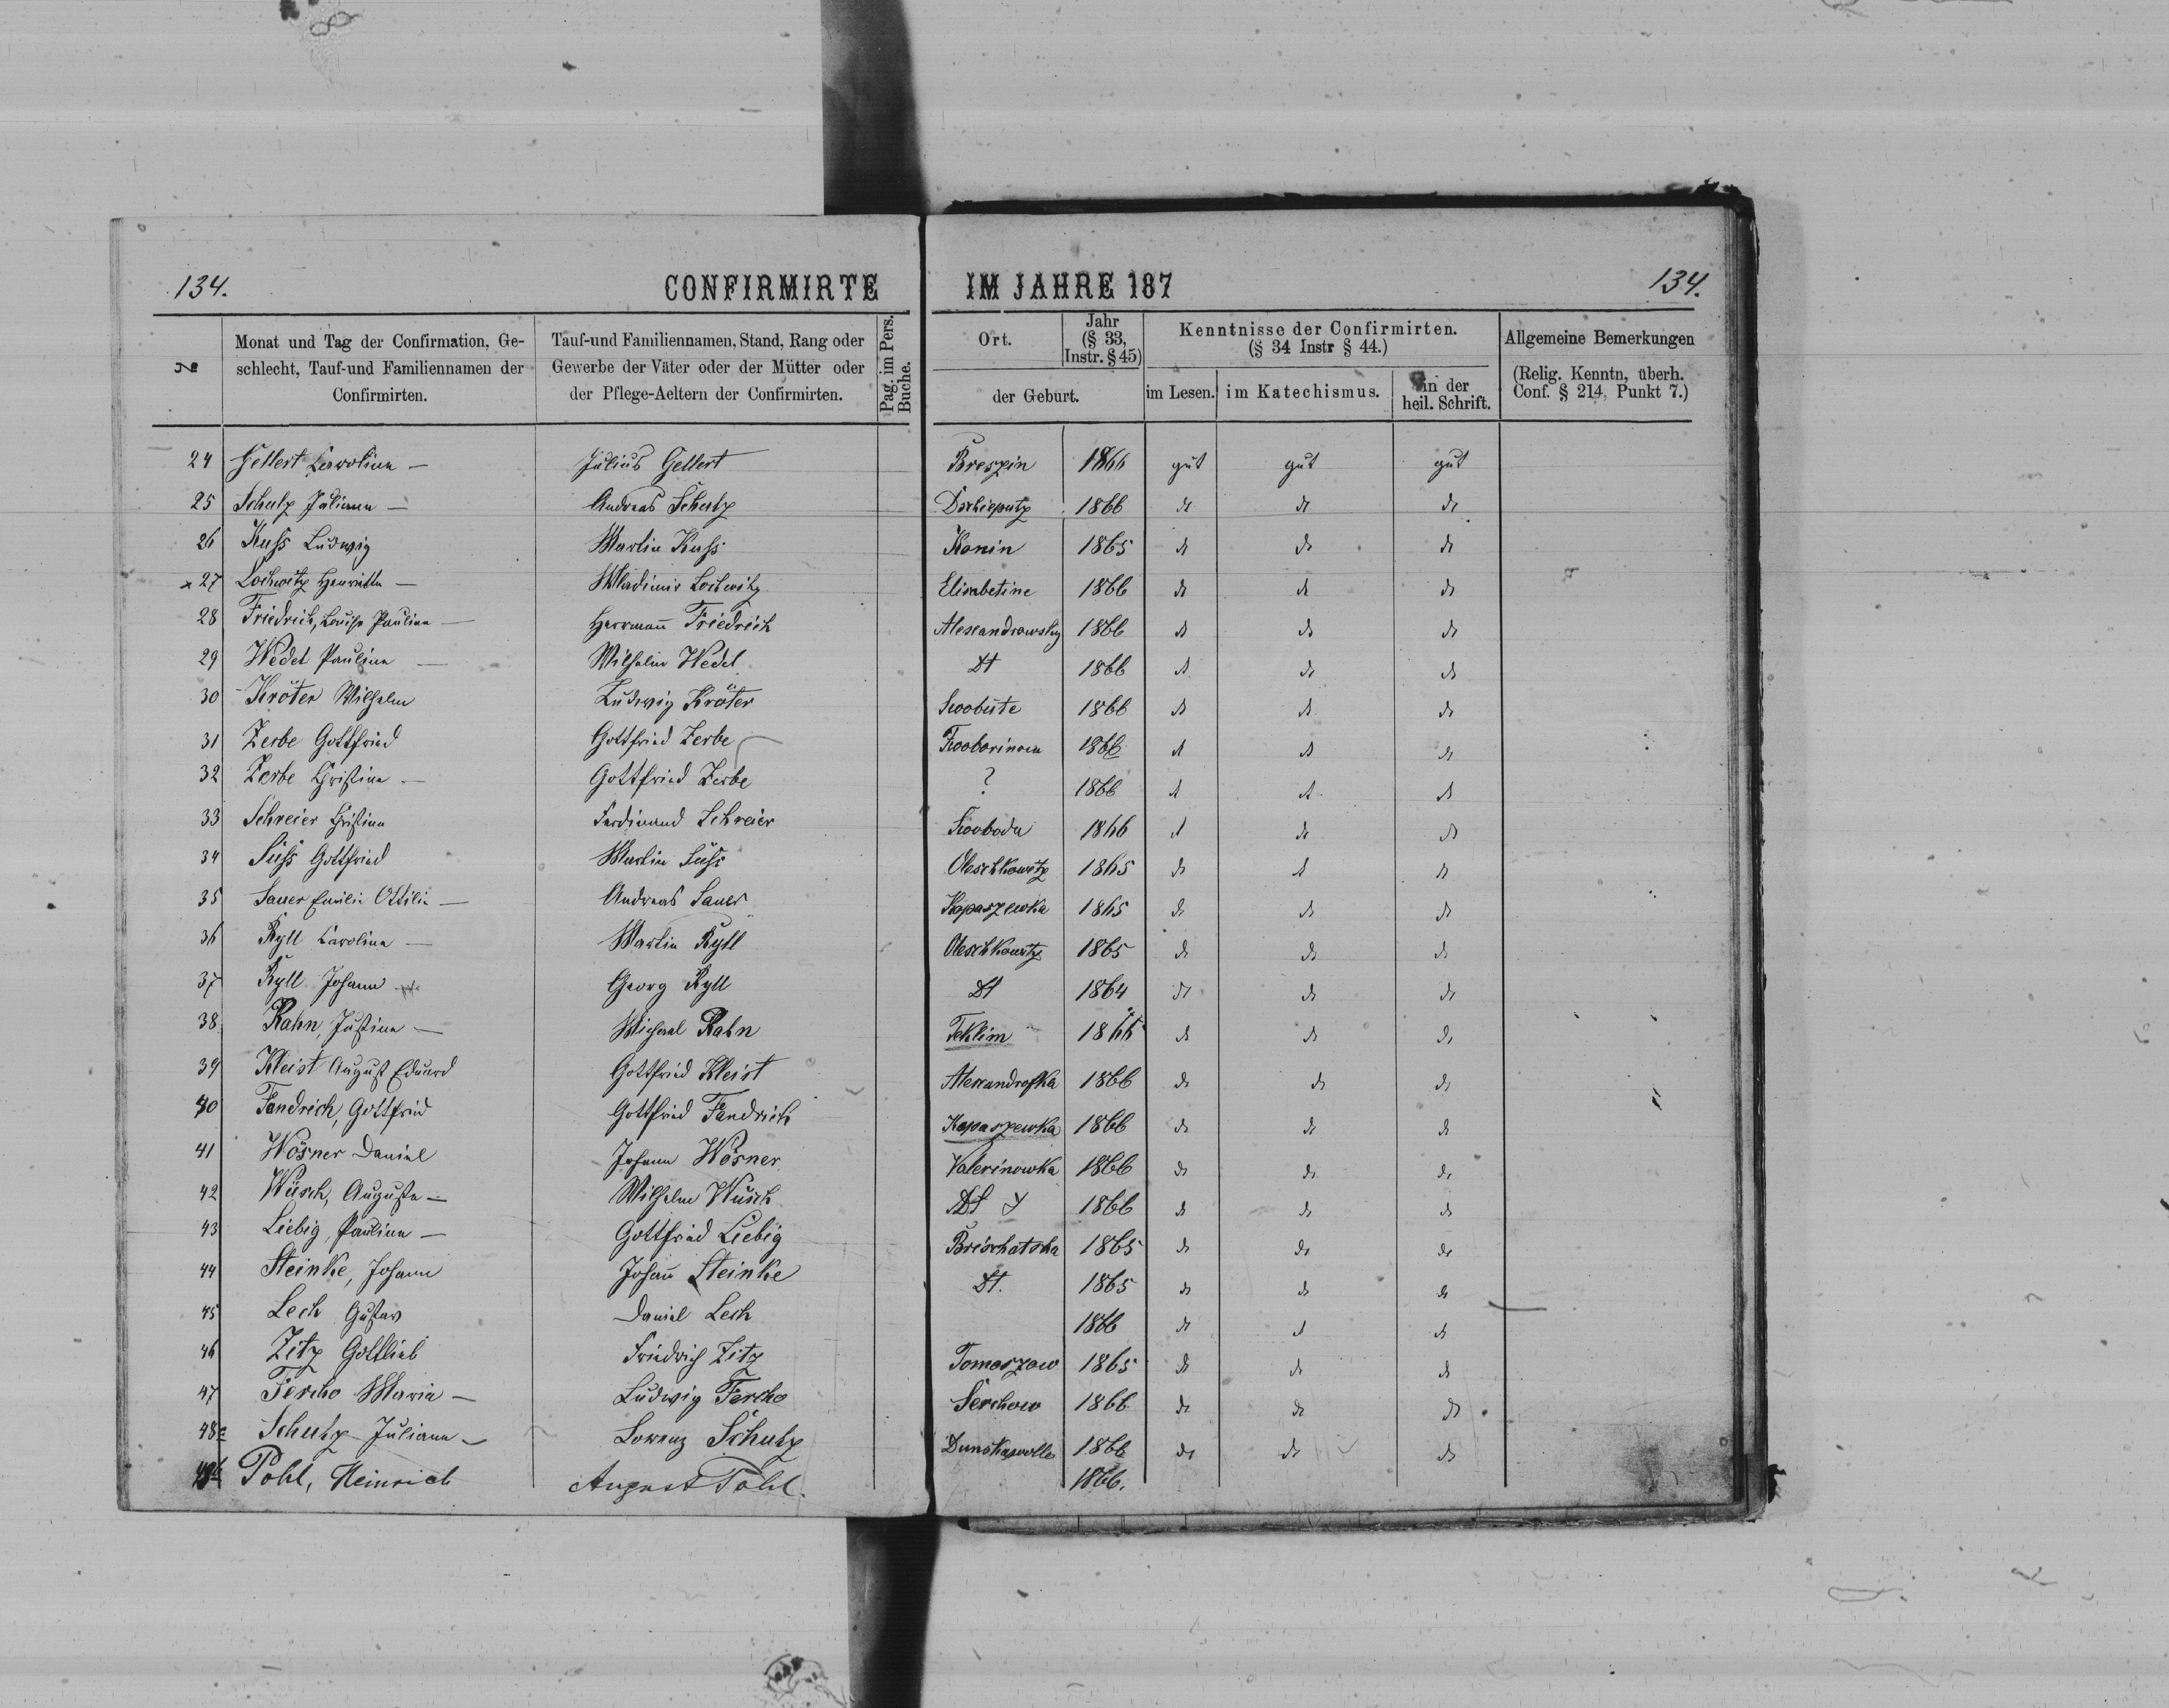 134. CONFIRMIRTE IM JAHRE 187 134.
№ Monat und Tag der Confirmation, Geschlecht, Tauf-und Familiennamen der Confirmirten. Tauf-und Familiennamen, Stand, Rang oder Gewerbe der Väter oder der Mütter oder der Pflege-Aeltern der Confirmirten. Pag. im Pers. Buche. Ort. Jahr (§ 33, Instr. § 45) der Geburt. Kenntnisse der Confirmirten. (§ 34 Instr § 44.) im Lesen. im Katechismus. in der heil. Schrift. Allgemeine Bemerkungen (Relig. Kenntn, überh. Conf. § 214, Punkt 7.)
24 Gellert Carolina — Julius Gellert Breszin 1866 gut gut gut
25 Schulz Juliana — Andreas Schulz 1866 dt dt dt
26 Kuss Ludwig Martin Kuss Konin 1865 dt dt dt
x 27 Lochwitz Henriette — Wladimir Lochwitz Elisabetine 1866 dt dt dt
28 Friedrich, Louise Paulina — Herrmann Friedrich Alexandrowsky 1866 dt dt dt
29 Wedel Paulina — Wilhelm Wedel Dt 1866 dt dt dt
30 Kröter Wilhelm Ludwig Kröter 1866 dt dt dt
31 Zerbe Gottfried Gottfried Zerbe 1866 dt dt dt
32 Zerbe Christina — Gottfried Zerbe ? 1866 dt dt dt
33 Schreier Christina Ferdinand Schreier Swoboda 1866 dt dt dt
34 Süss Gottfried Martin Süss Oleschkowitz 1865 dt dt dt
35 Sauer Emilie Ottilie — Andreas Sauer Kopaszewka 1865 dt dt dt
36 Ryll Carolina — Martin Ryll Oleschkowitz 1865 dt dt dt
37 Ryll Johann Georg Ryll Dt 1864 dt dt dt
38 Rahn, Justina — Michael Rahn Teklim 1866 dt dt dt
39 Kleist August Eduard Gottfried Kleist Alexandrofka 1866 dt dt dt
40 Fandrich, Gottfried Gottfried Fandrich Kopaszewka 1866 dt dt dt
41 Wösner Daniel Johann Wösner Valerinowka 1866 dt dt dt
42 Wüsch, Augusta — Wilhelm Wüsch Dt 1866 dt dt dt
43 Liebig, Paulina — Gottfried Liebig Brischatska 1865 dt dt dt
44 Steinke, Johann Johann Steinke Dt. 1865 dt dt dt
45 Lech Gustav Daniel Lech 1866 dt dt dt
46 Zitz Gottlieb Friedrich Zitz Tomaszow 1865 dt dt dt
47 Fercho Maria — Ludwig Fercho Serchow 1866 dt dt dt
48a Schulz Juliana — Lorenz Schulz 1866 dt dt dt
Pohl, Heinrich August Pohl. 1866.